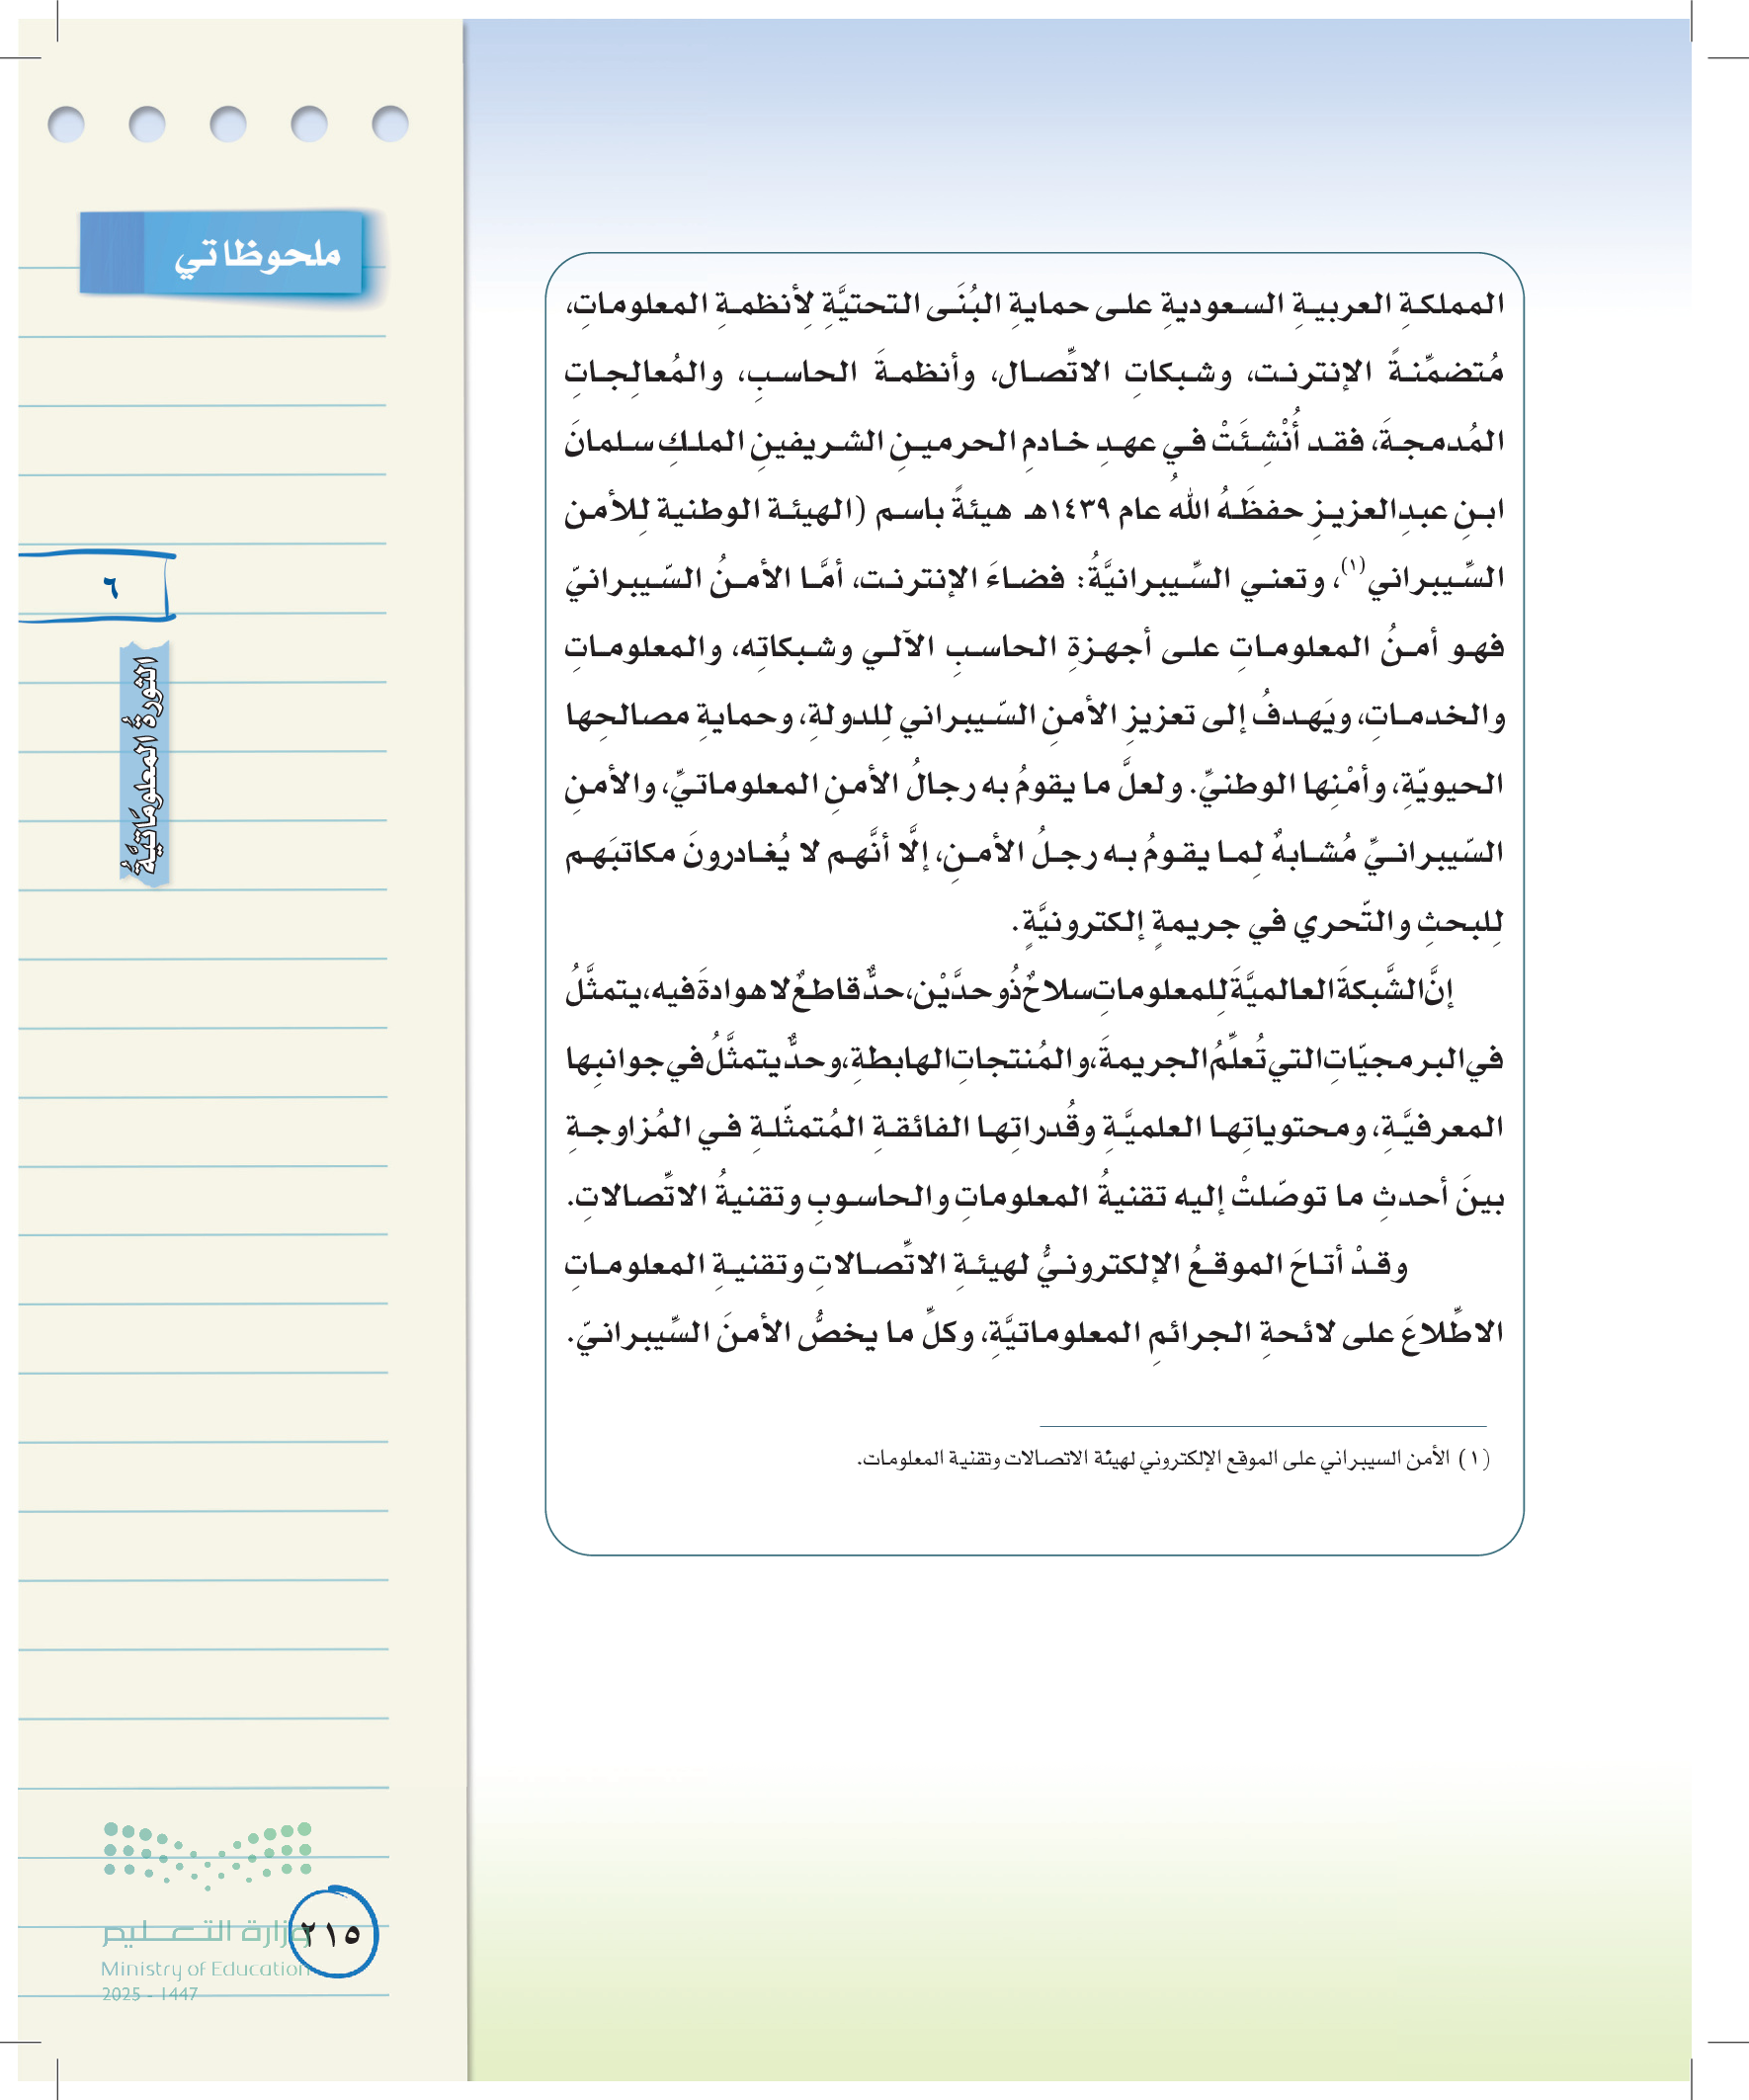 المملكةِ العربيةِ السعوديةِ على حمايةِ البُنَى التحتيَّةِ لِأنظمةِ المعلوماتِ،
مُتضمِّنةً الإنترنت، وشبكاتِ الاتِّصال، وأنظمةَ الحاسبِ، والمُعالِجاتِ
المُدمجةَ، فقد أُنْشِئَتْ في عهدِ خادمِ الحرمينِ الشريفينِ الملكِ سلمانَ
ابنِ عبدِالعزيزِ حفظَهُ اللهُ عام ١٤٣٩هـ هيئةً باسم (الهيئة الوطنية لِلأمن
السِّيبراني(١)، وتعني السِّيبرانيَّةُ: فضاءَ الإنترنت، أمَّا الأمنُ السّيبرانيّ
فهو أمنُ المعلوماتِ على أجهزةِ الحاسبِ الآلي وشبكاتِه، والمعلوماتِ
والخدماتِ، ويَهدفُ إلى تعزيزِ الأمنِ السّيبراني لِلدولةِ، وحمايةِ مصالحِها
الحيويّةِ، وأمْنِها الوطنيِّ. ولعلَّ ما يقومُ به رجالُ الأمنِ المعلوماتيِّ، والأمنِ
السّيبرانيِّ مُشابهٌ لِما يقومُ به رجلُ الأمنِ، إلَّا أنَّهم لا يُغادرونَ مكاتبَهم
لِلبحثِ والتّحري في جريمةٍ إلكترونيَّةٍ.
إنَّ الشَّبكةَ العالميَّةَ لِلمعلوماتِ سلاحٌ ذُو حدَّيْن، حدٌّ قاطعٌ لا هوادةَ فيه، يتمثَّلُ
في البرمجيّاتِ التي تُعلِّمُ الجريمةَ، والمُنتجاتِ الهابطةِ، وحدٌّ يتمثَّلُ في جوانبِها
المعرفيَّةِ، ومحتوياتِها العلميَّةِ وقُدراتِها الفائقةِ المُتمثّلةِ في المُزاوجةِ
بينَ أحدثِ ما توصّلتْ إليه تقنيةُ المعلوماتِ والحاسوبِ وتقنيةُ الاتِّصالاتِ.
وقدْ أتاحَ الموقعُ الإلكترونيُّ لهيئةِ الاتِّصالاتِ وتقنيةِ المعلوماتِ
الاطِّلاعَ على لائحةِ الجرائمِ المعلوماتيَّةِ، وكلِّ ما يخصُّ الأمنَ السِّيبرانيّ.
(١) الأمن السيبراني على الموقع الإلكتروني لهيئة الاتصالات وتقنية المعلومات.
ملحوظاتي
٦
الثورةُ المعلومَاتيَّةُ
وزارة التعليم
٢١٥
Ministry of Education
2025 - 1447